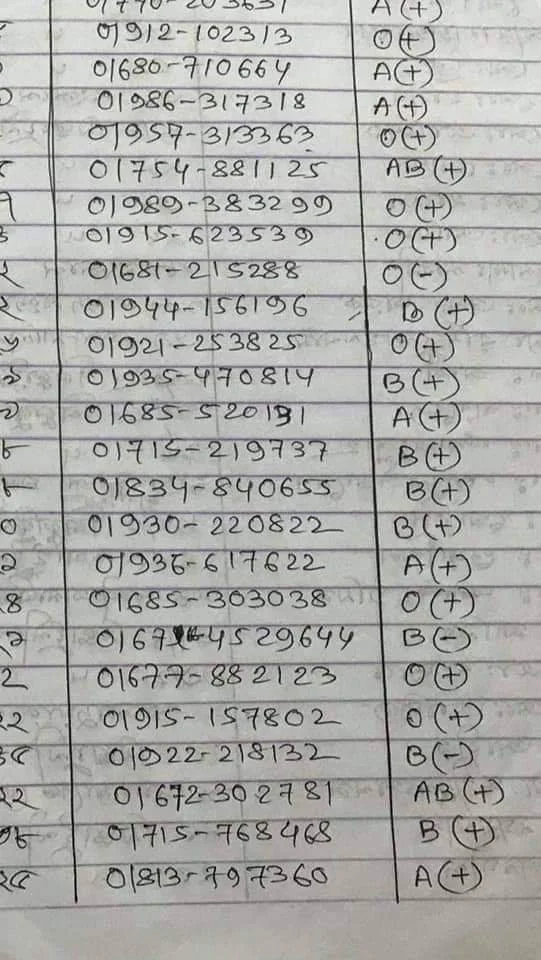 01770-203631 A(+)
01912-102313 O(+)
01680-710664 A(+)
01986-317318 A(+)
01957-313363 O(+)
01754-881125 AB(+)
01989-383299 O(+)
01915-623539 O(+)
01681-215288 O(-)
01944-156196 B(+)
01921-253825 O(+)
01935-470814 B(+)
01685-520191 A(+)
01715-219737 B(+)
01834-840655 B(+)
01930-220822 B(+)
01936-617622 A(+)
01685-303038 O(+)
B(-)
01677-882123 O(+)
01915-157802 O(+)
01922-218132 B(-)
01672-302781 AB(+)
01715-768468 B(+)
01813-797360 A(+)